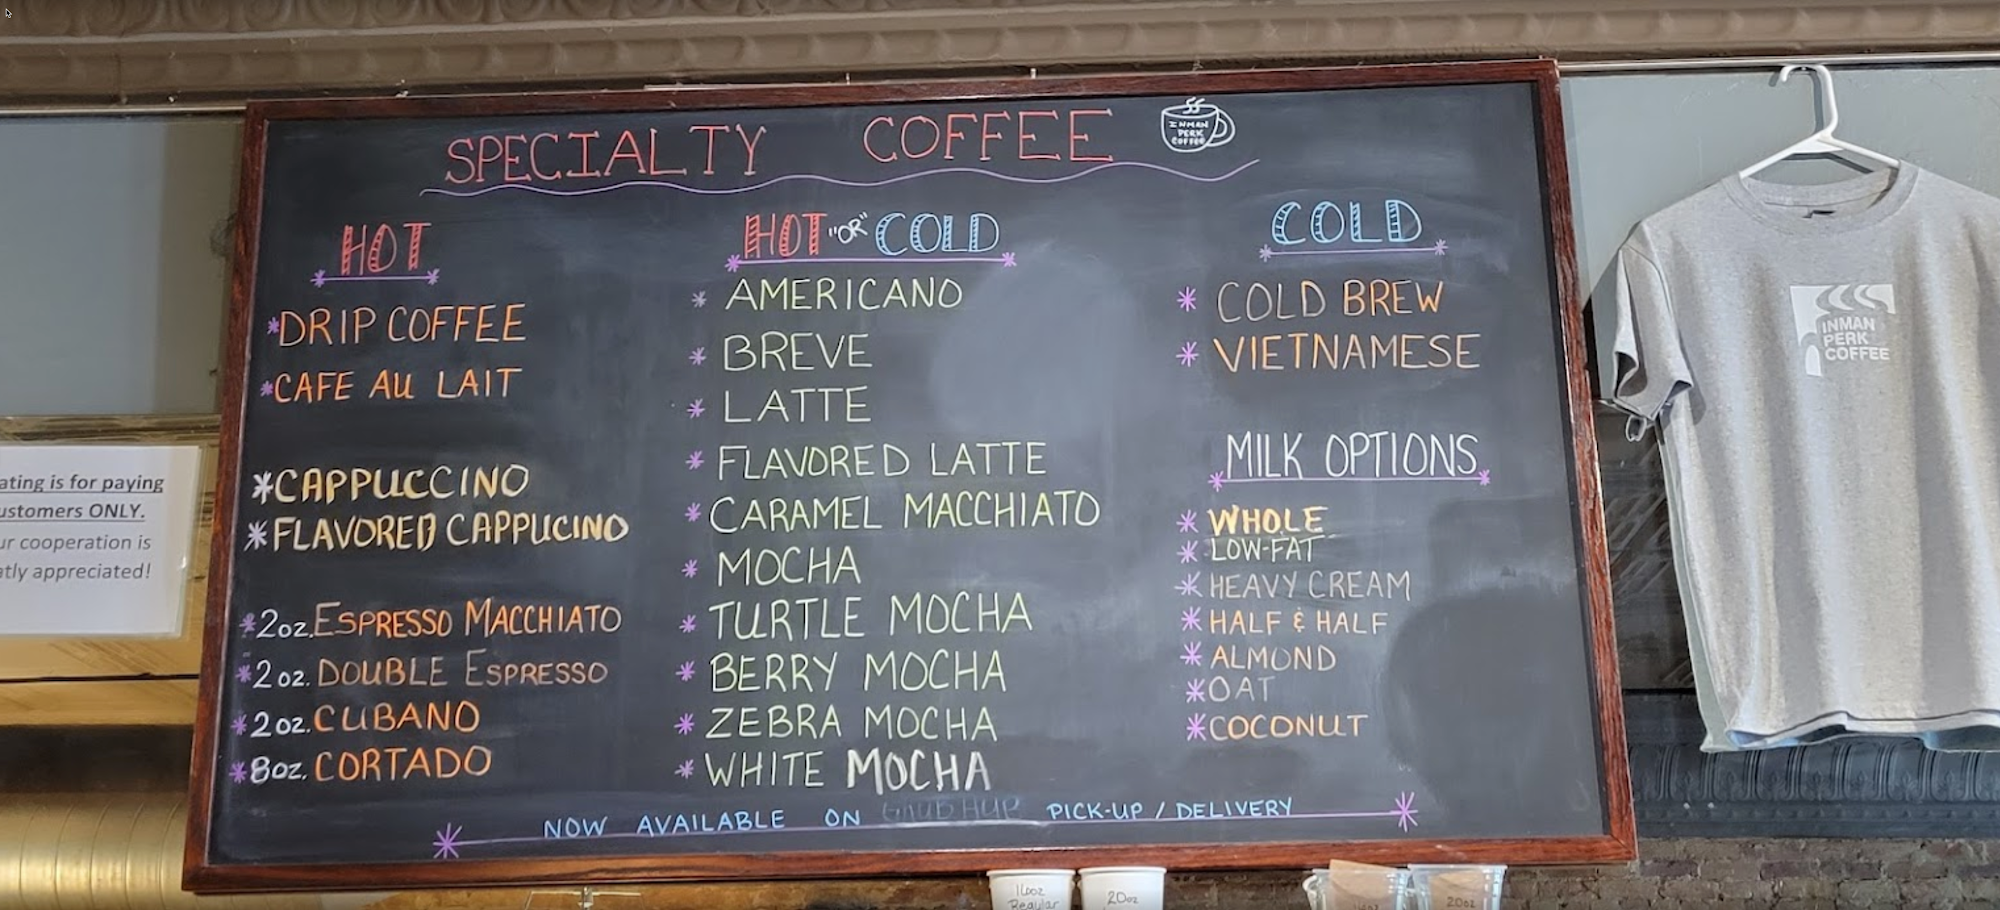 SPECIALTY COFFEE
INMAN
PERK
COFFEE
HOT
*DRIP COFFEE
*CAFE AU LAIT
*CAPPUCCINO
*FLAVORED CAPPUCINO
*2oz. ESPRESSO MACCHIATO
*2oz. DOUBLE ESPRESSO
*2oz. CUBANO
*8oz. CORTADO
HOT "OR" COLD
* AMERICANO
* BREVE
* LATTE
* FLAVORED LATTE
* CARAMEL MACCHIATO
* MOCHA
* TURTLE MOCHA
* BERRY MOCHA
* ZEBRA MOCHA
* WHITE MOCHA
COLD
* COLD BREW
* VIETNAMESE
MILK OPTIONS
* WHOLE
* LOW-FAT
* HEAVY CREAM
* HALF & HALF
* ALMOND
* OAT
* COCONUT
NOW AVAILABLE ON GRUBHUB PICK-UP / DELIVERY
INMAN
PERK
COFFEE
ating is for paying
ustomers ONLY.
ur cooperation is
atly appreciated!
16oz
Regular
20oz
20oz